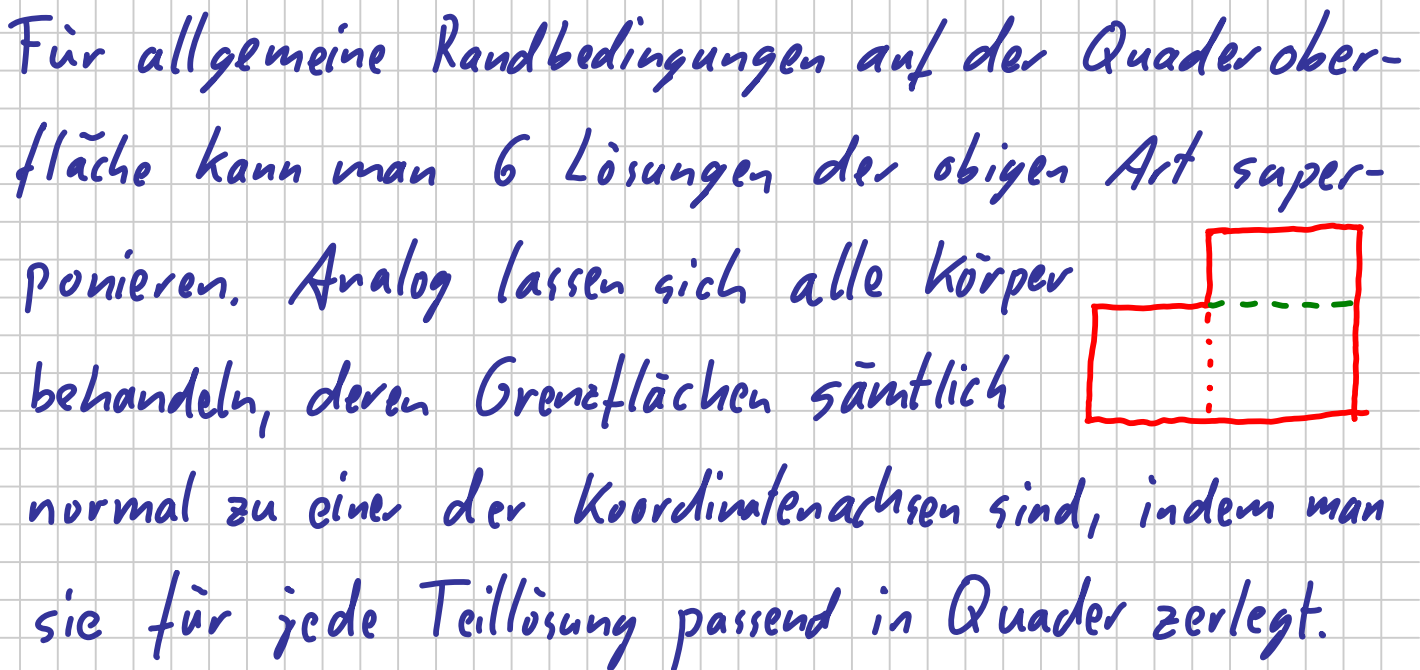 Für allgemeine Randbedingungen auf der Quaderober-
fläche kann man 6 Lösungen der obigen Art super-
ponieren. Analog lassen sich alle Körper
behandeln, deren Grenzflächen sämtlich
normal zu einer der Koordinatenachsen sind, indem man
sie für jede Teillösung passend in Quader zerlegt.